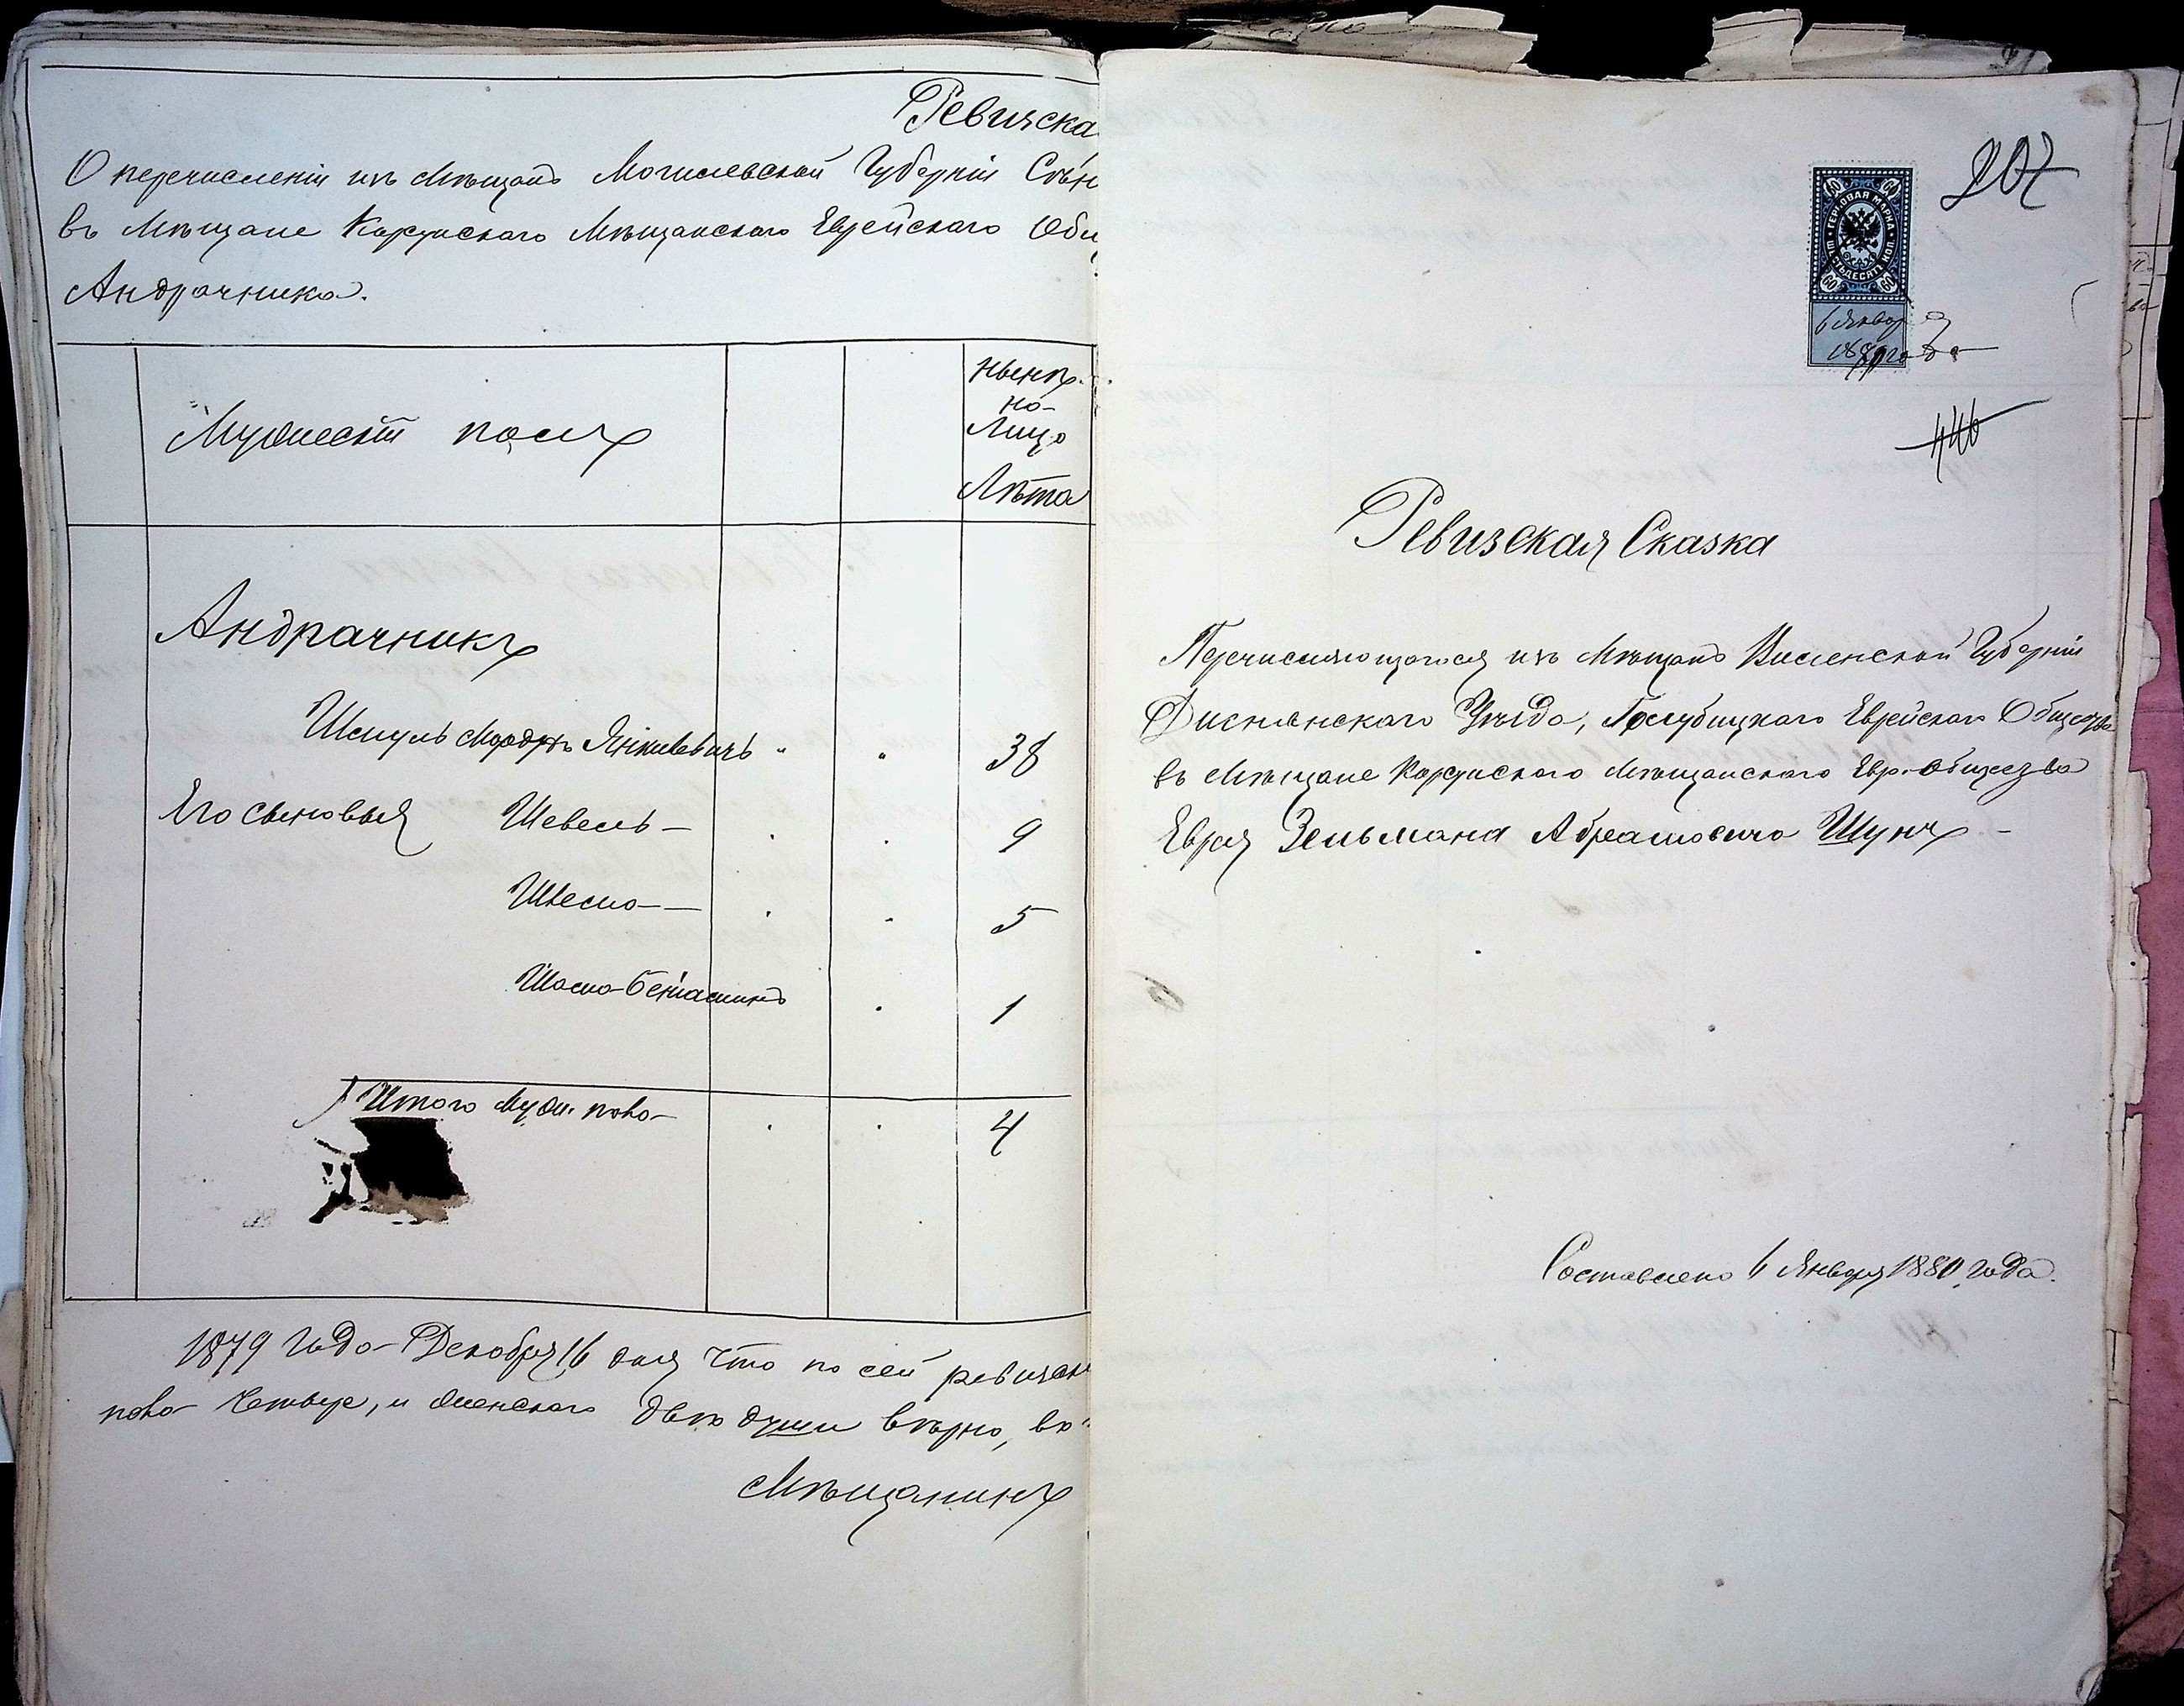 Ревизска
О перечисленіи изъ Мѣщанъ Могилевской Губерніи Сѣн
въ Мѣщане Мѣщанскаго Еврейскаго Общ
Андрачника.
Мужескій полъ
нынѣ
на-
Лицо
Лѣта
Андрачникъ
Шмуль Янкилевичъ " " 38
Его сыновья Шевель — 9
5
1
Итого Муж. пола — 4
1879 года Декабря 16 дня что по сей ревизск
пола четыре, и женскаго двѣ души вѣрно, въ
Мѣщанинъ
207
60 60
ГЕРБОВАЯ МАРКА
ШЕСТЬДЕСЯТЪ КОП.
60 60
6 Января
1880 года
446
Ревизская Сказка
Перечисляющагося изъ Мѣщанъ Виленской Губерніи
Дисненскаго Уѣзда, Голубицкаго Еврейскаго Общества
въ Мѣщане Мѣщанскаго Евр. Общества
Еврея Зельмана Абрамовича Шунъ -
Составлена 6 Января 1880 года.